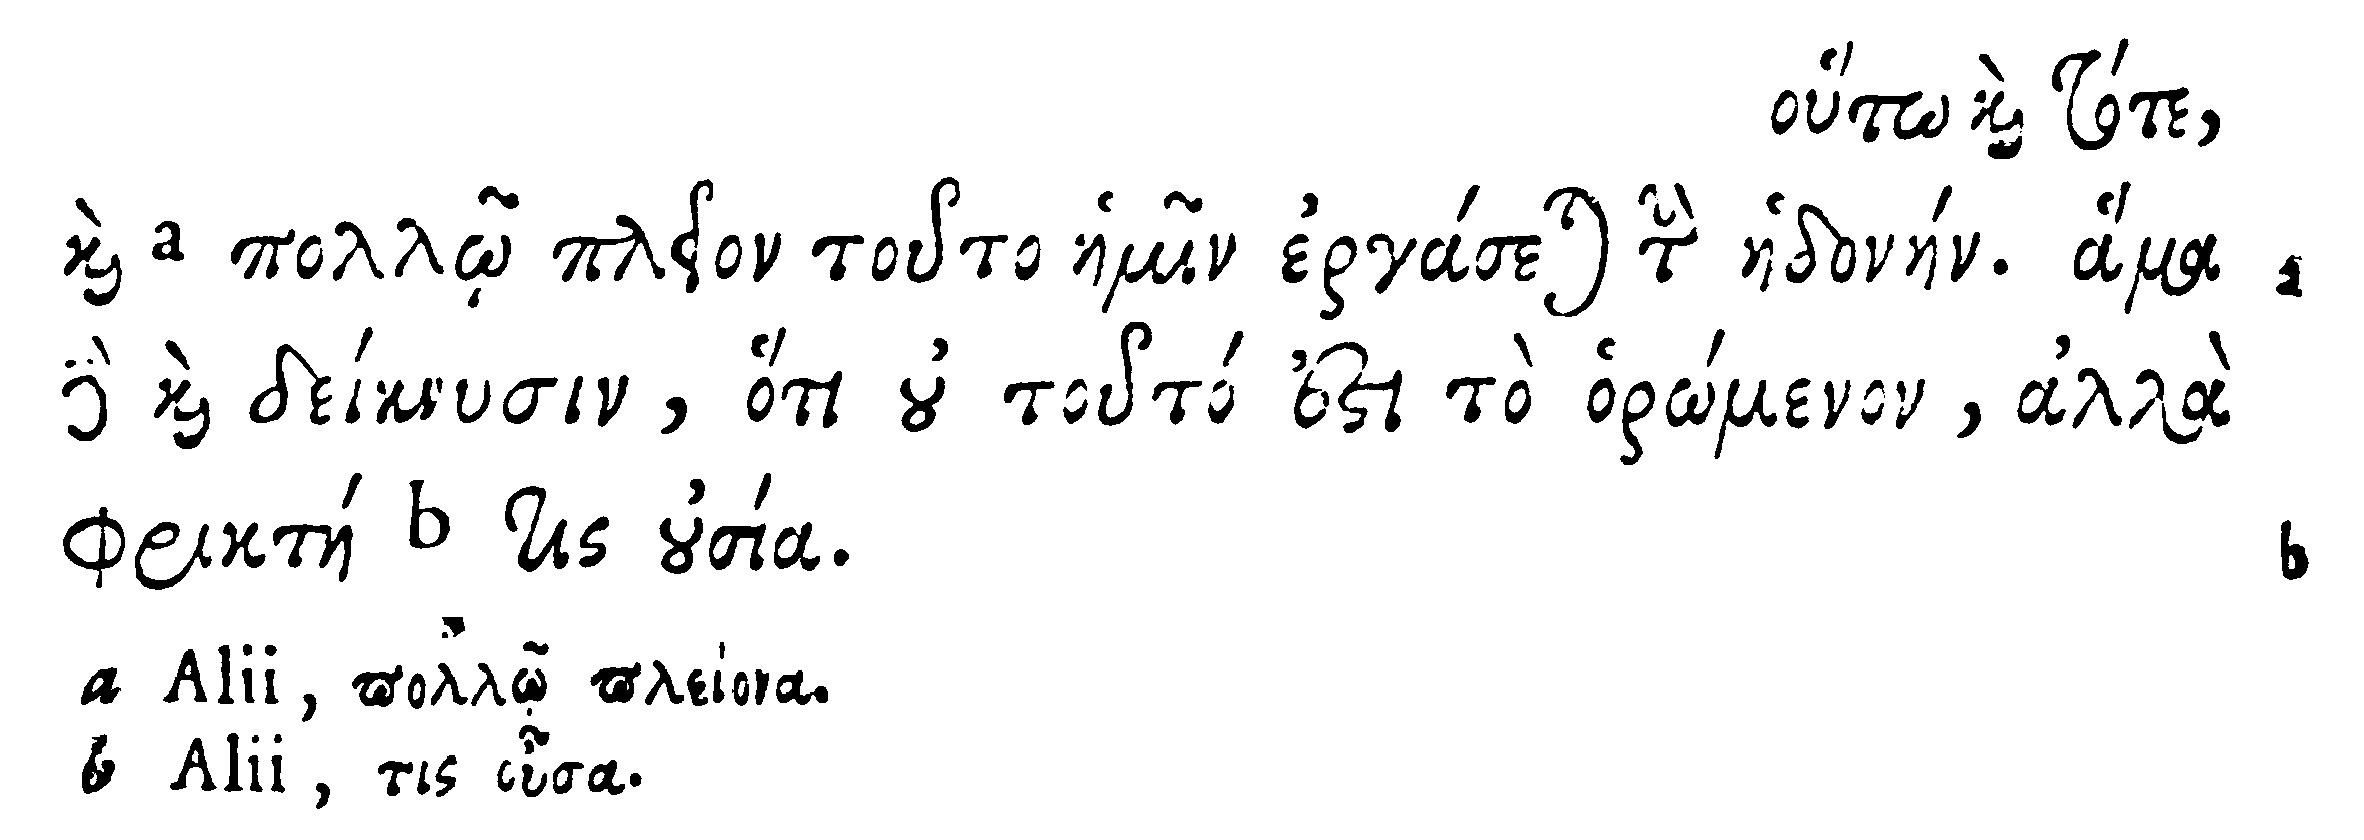 οὕτω καὶ τότε,
καὶ a πολλῷ πλεῖον τοῦτο ἡμῖν ἐργάσεται τὴν ἡδονήν. ἅμα a
δὲ καὶ δείκνυσιν, ὅτι οὐ τοῦτό ἐστι τὸ ὁρώμενον, ἀλλὰ
φρικτή b τις οὐσία. b
a Alii, πολλῷ πλείονα.
b Alii, τις οὖσα.